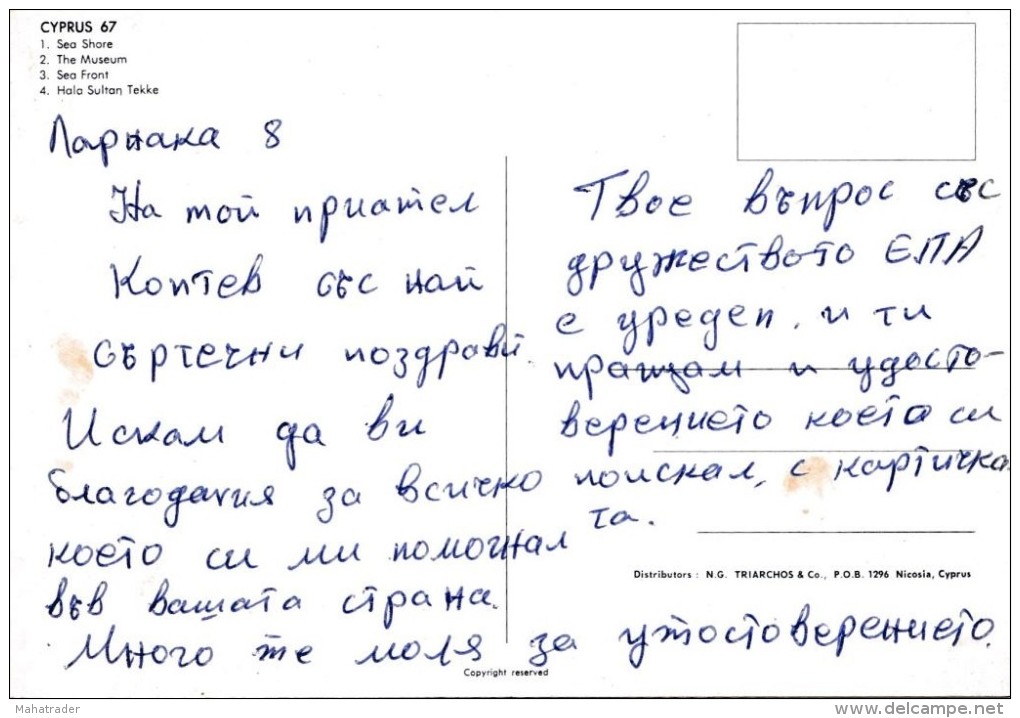 CYPRUS 67
1. Sea Shore
2. The Museum
3. Sea Front
4. Hala Sultan Tekke
Ларнака 8
На той приател
Коптев със най
съртечни поздрави.
Искам да ви
благодария за всичко
което си ми помогнал
във вашата страна.
Много те моля за утостоверението.
Твое въпрос със
дружеството ЕПА
е уреден. и ти
пращам и удосто-
верението коета си
поискал, с картичка
та.
Distributors : N.G. TRIARCHOS & Co., P.O.B. 1296 Nicosia, Cyprus
Copyright reserved
Mahatrader
delcampe.net